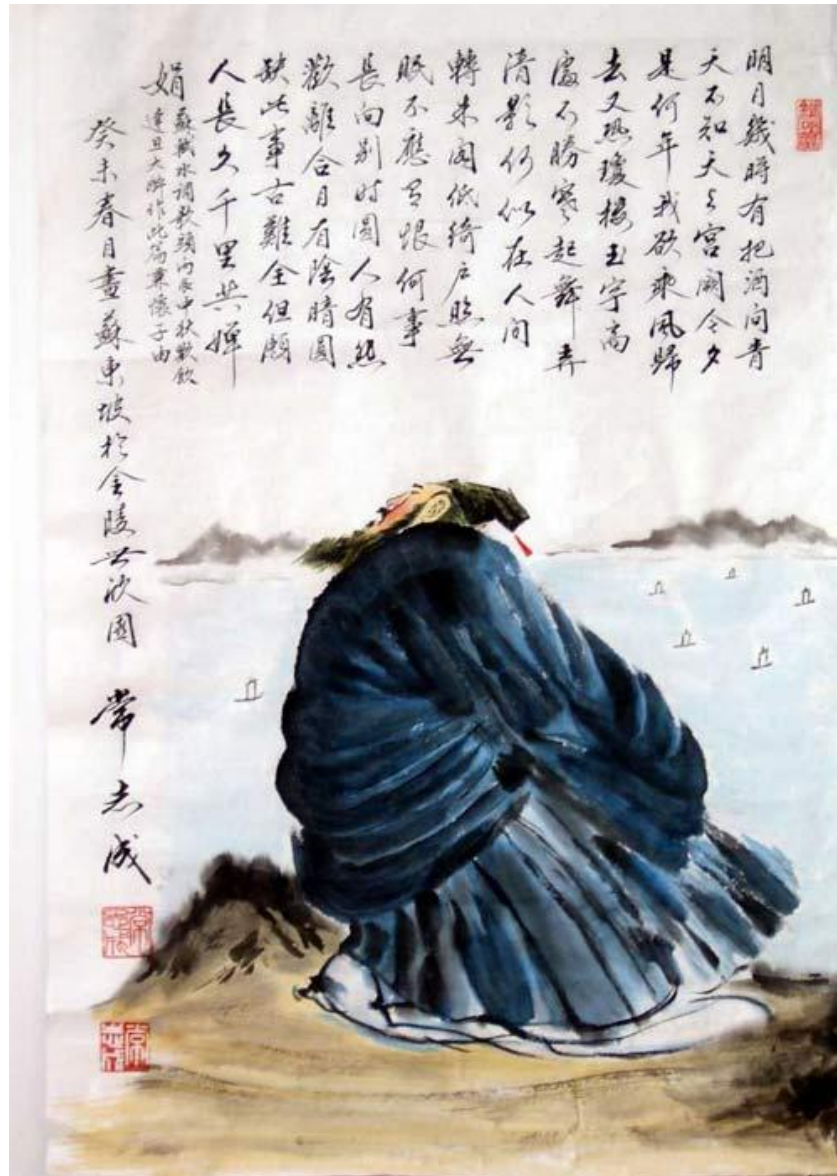 明月幾時有把酒問青
天不知天上宮闕今夕
是何年我欲乘風歸
去又恐瓊樓玉宇高
處不勝寒起舞弄
清影何似在人间
轉朱阁低綺户照無
眠不應有恨何事
長向别时圆人有悲
歡離合月有陰晴圓
缺此事古難全但願
人長久千里共嬋
娟
蘇軾水調歌頭丙辰中秋歡飲
達旦大醉作此篇兼懷子由
癸未春月畫蘇東坡於金陵欣園
常志成